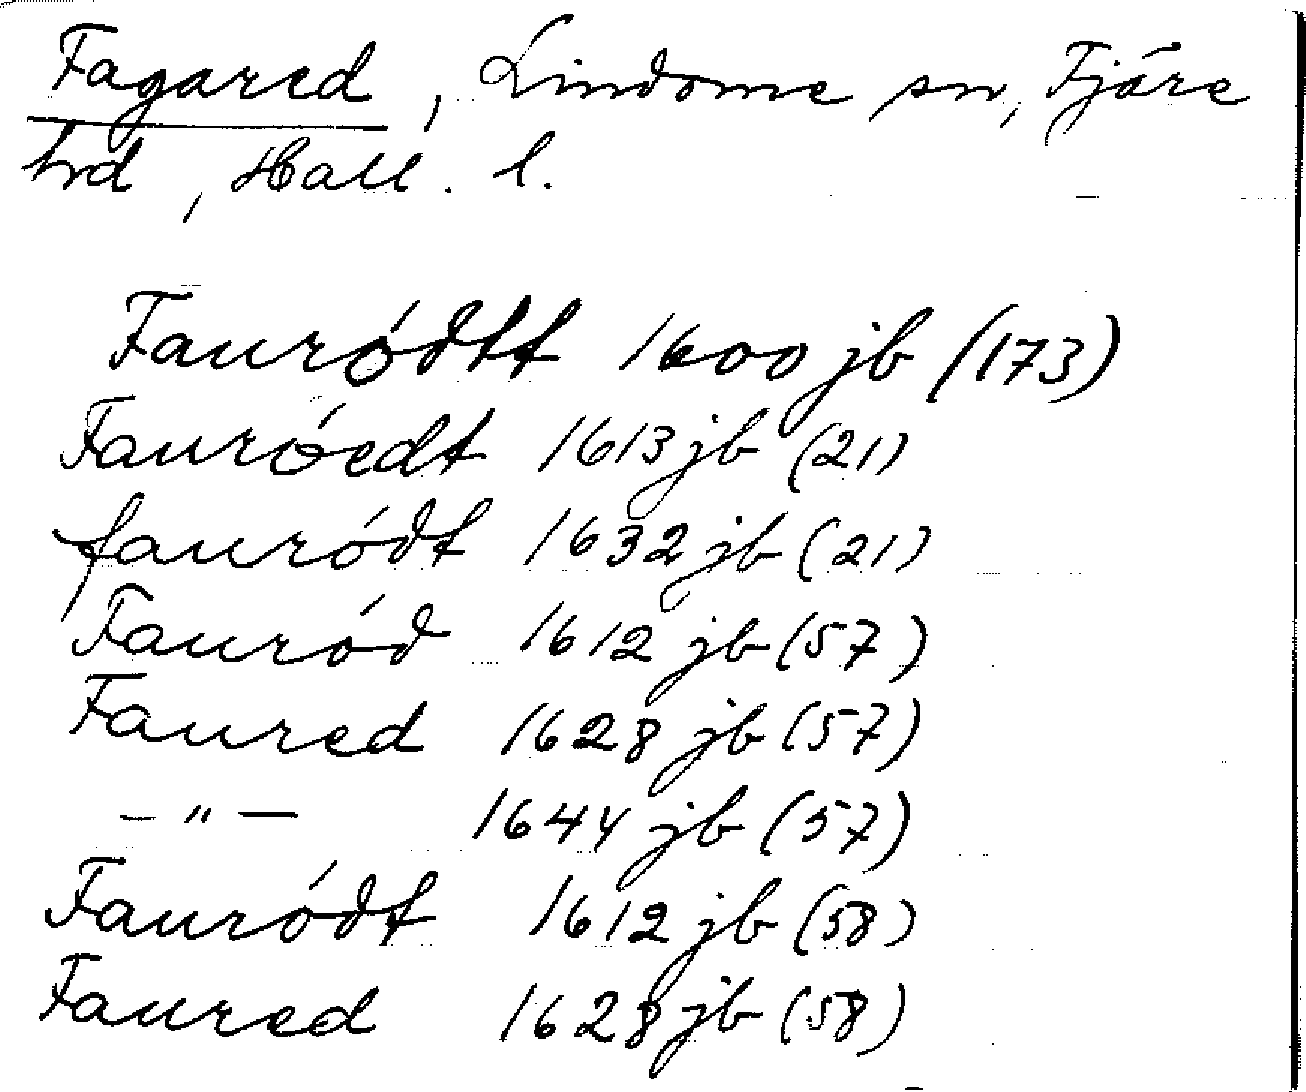 Fagared, Lindome sn, Fjäre
hrd, Hall. l.
Fauródtt 1600 jb (173)
Fauróedt 1613 jb (21)
fauródt 1632 jb (21)
Fauród 1612 jb (57)
Faured 1628 jb (57)
— " — 1644 jb (57)
Fauródt 1612 jb (58)
Faured 1628 jb (58)